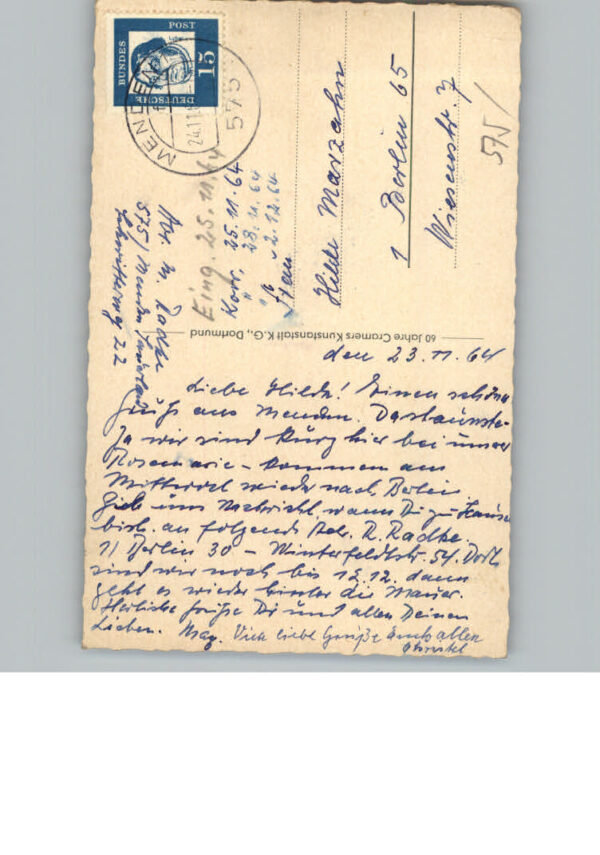 DEUTSCHE
BUNDES
POST
15
MENDEN
24.11.
575
Eing. 25.11.64
Korr. 25.11.64
" 28.11.64
" 2.12.64
Abs. M. Radke
575 / Menden / Sauerland
22
Frau
Hilde Marzahn
1 Berlin 65
Wiesenstr. 7
575/
60 Jahre Cramers Kunstanstalt K.G., Dortmund
den 23.11.64
Liebe Hilde! Einen schönen
Gruß aus Menden. Da staunste.
Ja wir sind kurz hier bei unser
Rosemarie - kommen am
Mittwoch wieder nach Berlin
Gieb uns Nachricht, wann Du zu Hause
bist. an folgende Adr. R. Radke.
1/ Berlin 30 - Winterfeldtstr. 54. Dort
sind wir noch bis 12.12. dann
geht es wieder hinter die Mauer.
Herzliche Grüße Dir und allen Deinen
Lieben. Viele liebe Grüße Euch allen